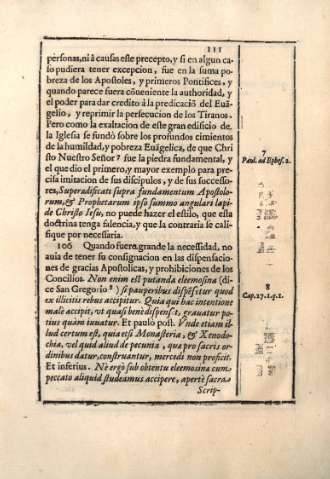 111
personas, ni à causas este precepto, y si en algun ca-
so pudiera tener excepcion, fue en la suma po-
breza de los Apostoles, y primeros Pontifices, y
quando parece fuera cõueniente la authoridad, y
el poder para dar credito à la predicaciõ del Euã-
gelio, y reprimir la persecucion de los Tiranos.
Pero como la exaltacion de este gran edificio de
la Iglesia se fundò sobre los profundos cimientos
de la humildad, y pobreza Euãgelica, de que Chri
sto Nuestro Señor 7 fue la piedra fundamental, y
el que dio el primero, y mayor exemplo para pre-
cisa imitacion de sus discipulos, y de sus successo-
res, Superadificati supra fundamentum Apostolo-
rum, & Prophetarum ipso summo angulari lapi-
de Christo Iesu, no puede hazer el estilo, que esta
doctrina tenga falencia, y que la contraria se cali-
fique por necessaria.
106 Quando fuera grande la necessidad, no
auia de tener su consignacion en las dispensacio-
nes de gracias Apostolicas, y prohibiciones de los
Concilios. Non enim est putanda eleemosina (di-
ce San Gregorio 8) si pauperibus dispẽsetur quod
ex illicitis rebus accipitur. Quia qui hac intentione
male accipit, vt quasi benè dispenset, grauatur po-
tius quàm iuuatur. Et paulo post. Vnde etiam il-
lud certum est, quia etsi Monasteria, & Xenodo-
chia, vel quid aliud de pecunia, qua pro sacris or-
dinibus datur, construantur, mercedi non proficit.
Et inferius. Nè ergò sub obtentu eleemosina cum
peccato aliquid studeamus accipere, apertè sacra
Scrip-
7
Paul. ad Ephes. 2.
8
Cap. 27. 1. q. 1.